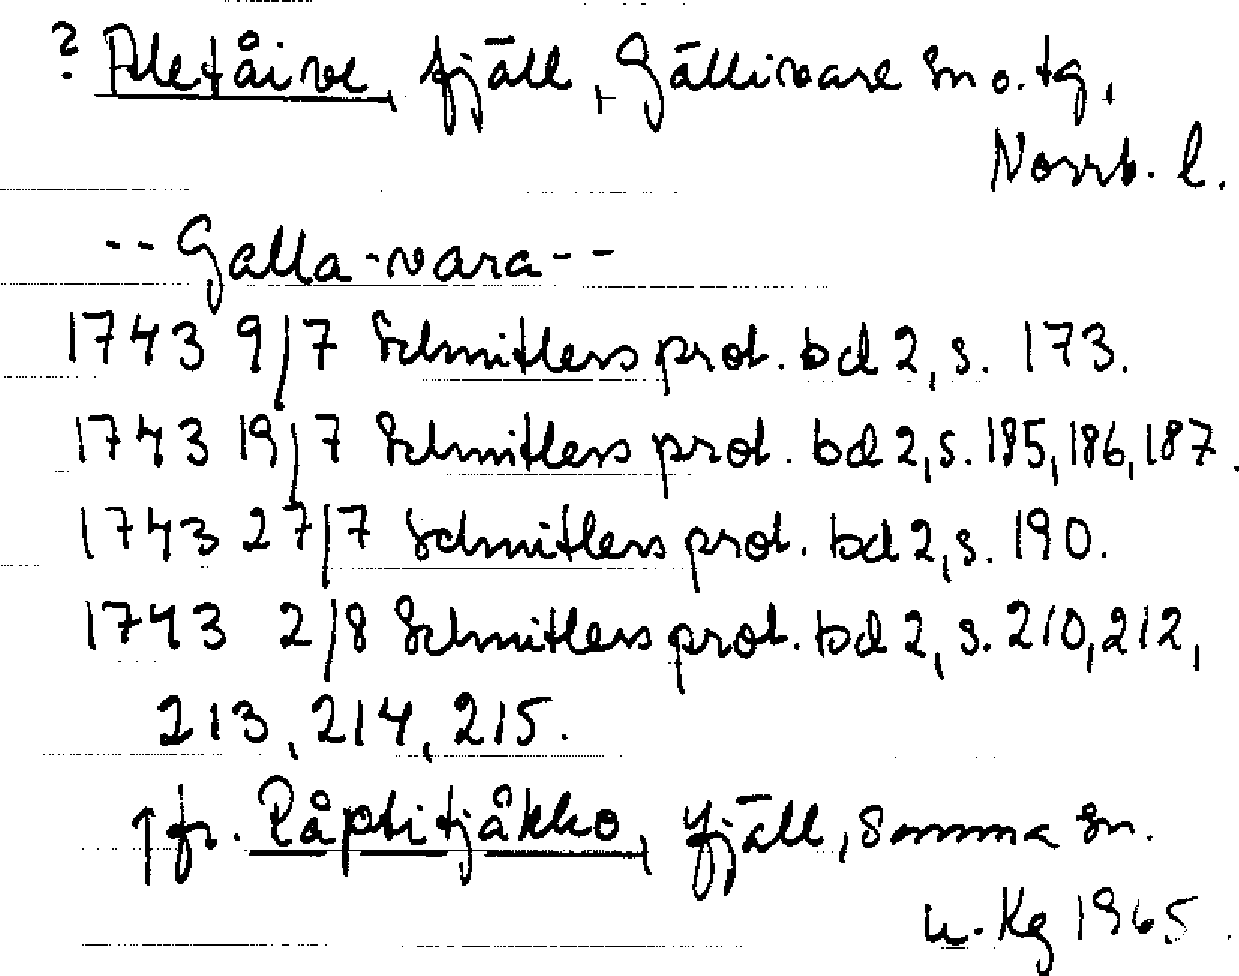 ? Aletåive, fjäll, Gällivare sn o. tg,
Norrb. l.
-- Galla-vara --
1743 9/7 Schnitlers prot. bd 2, s. 173.
1743 19/7 Schnitlers prot. bd 2, s. 185, 186, 187.
1743 27/7 Schnitlers prot. bd 2, s. 190.
1743 2/8 Schnitlers prot. bd 2, s. 210, 212,
213, 214, 215.
↑ fr. Råptitjåkko, fjäll, samma sn.
Kg 1965.